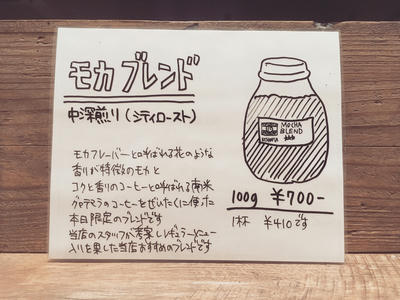 モカブレンド
中深煎り(シティロースト)
モカフレーバーと呼ばれる花のような
香りが特徴のモカと
コクと香りのコーヒーと呼ばれる南米
グァテマラのコーヒーをぜいたくに使った
本日限定のブレンドです
当店のスタッフが考案しレギュラーメニュー
入りを果した当店おすすめのブレンドです
MOCHA
BLEND
100g ¥700-
1杯 ¥410です